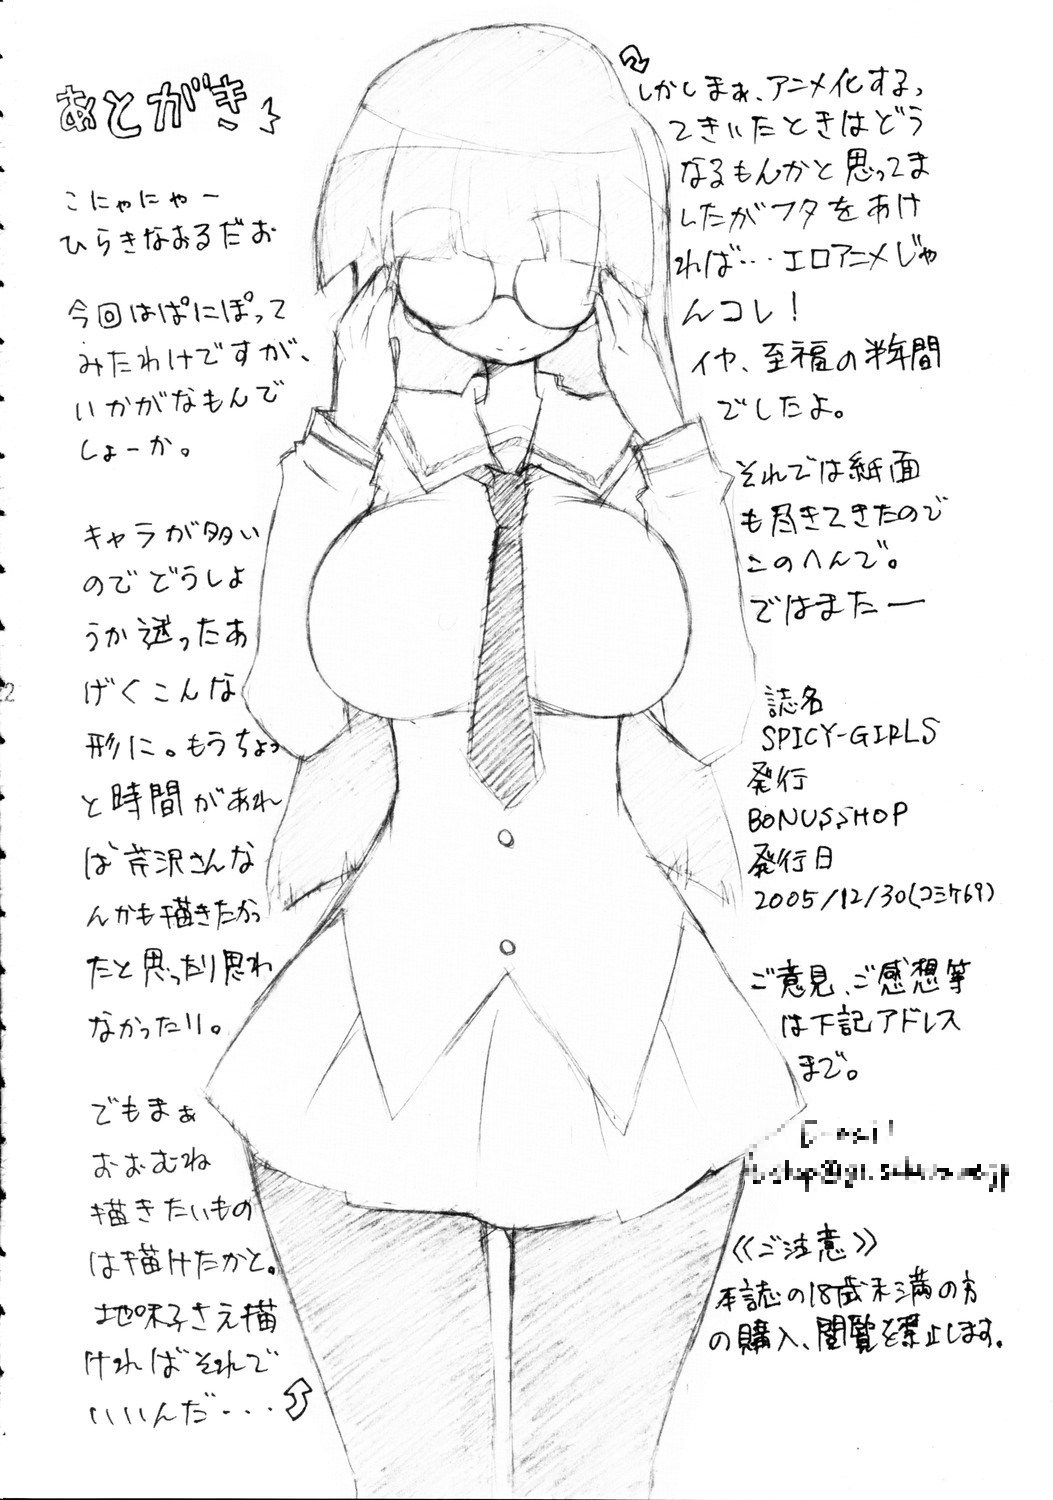 あとがき
こにゃにゃー
ひらきなおるだお
今回はぱにぽって
みたわけですが、
いかがなもんで
しょーか。
キャラが多い
のでどうしよ
うか迷ったあ
げくこんな
形に。もうちょっ
と時間があれ
ば芹沢さんな
んかも描きたかっ
たと思ったり思わ
なかったり。
でもまぁ
おおむね
描きたいもの
は描けたかと。
地味子さえ描
ければそれで
いいんだ・・・
しかしまぁ、アニメ化するっ
てきいたときはどう
なるもんかと思ってま
したがフタをあけ
れば・・・エロアニメじゃ
んコレ！
イヤ、至福の半年間
でしたよ。
それでは紙面
も尽きてきたので
このへんで。
ではまたー
誌名
SPICY-GIRLS
発行
BONUSSHOP
発行日
2005/12/30(コミケ69)
ご意見、ご感想等
は下記アドレス
まで。
E-mail
《ご注意》
本誌の18歳未満の方
の購入、閲覧を禁止します。